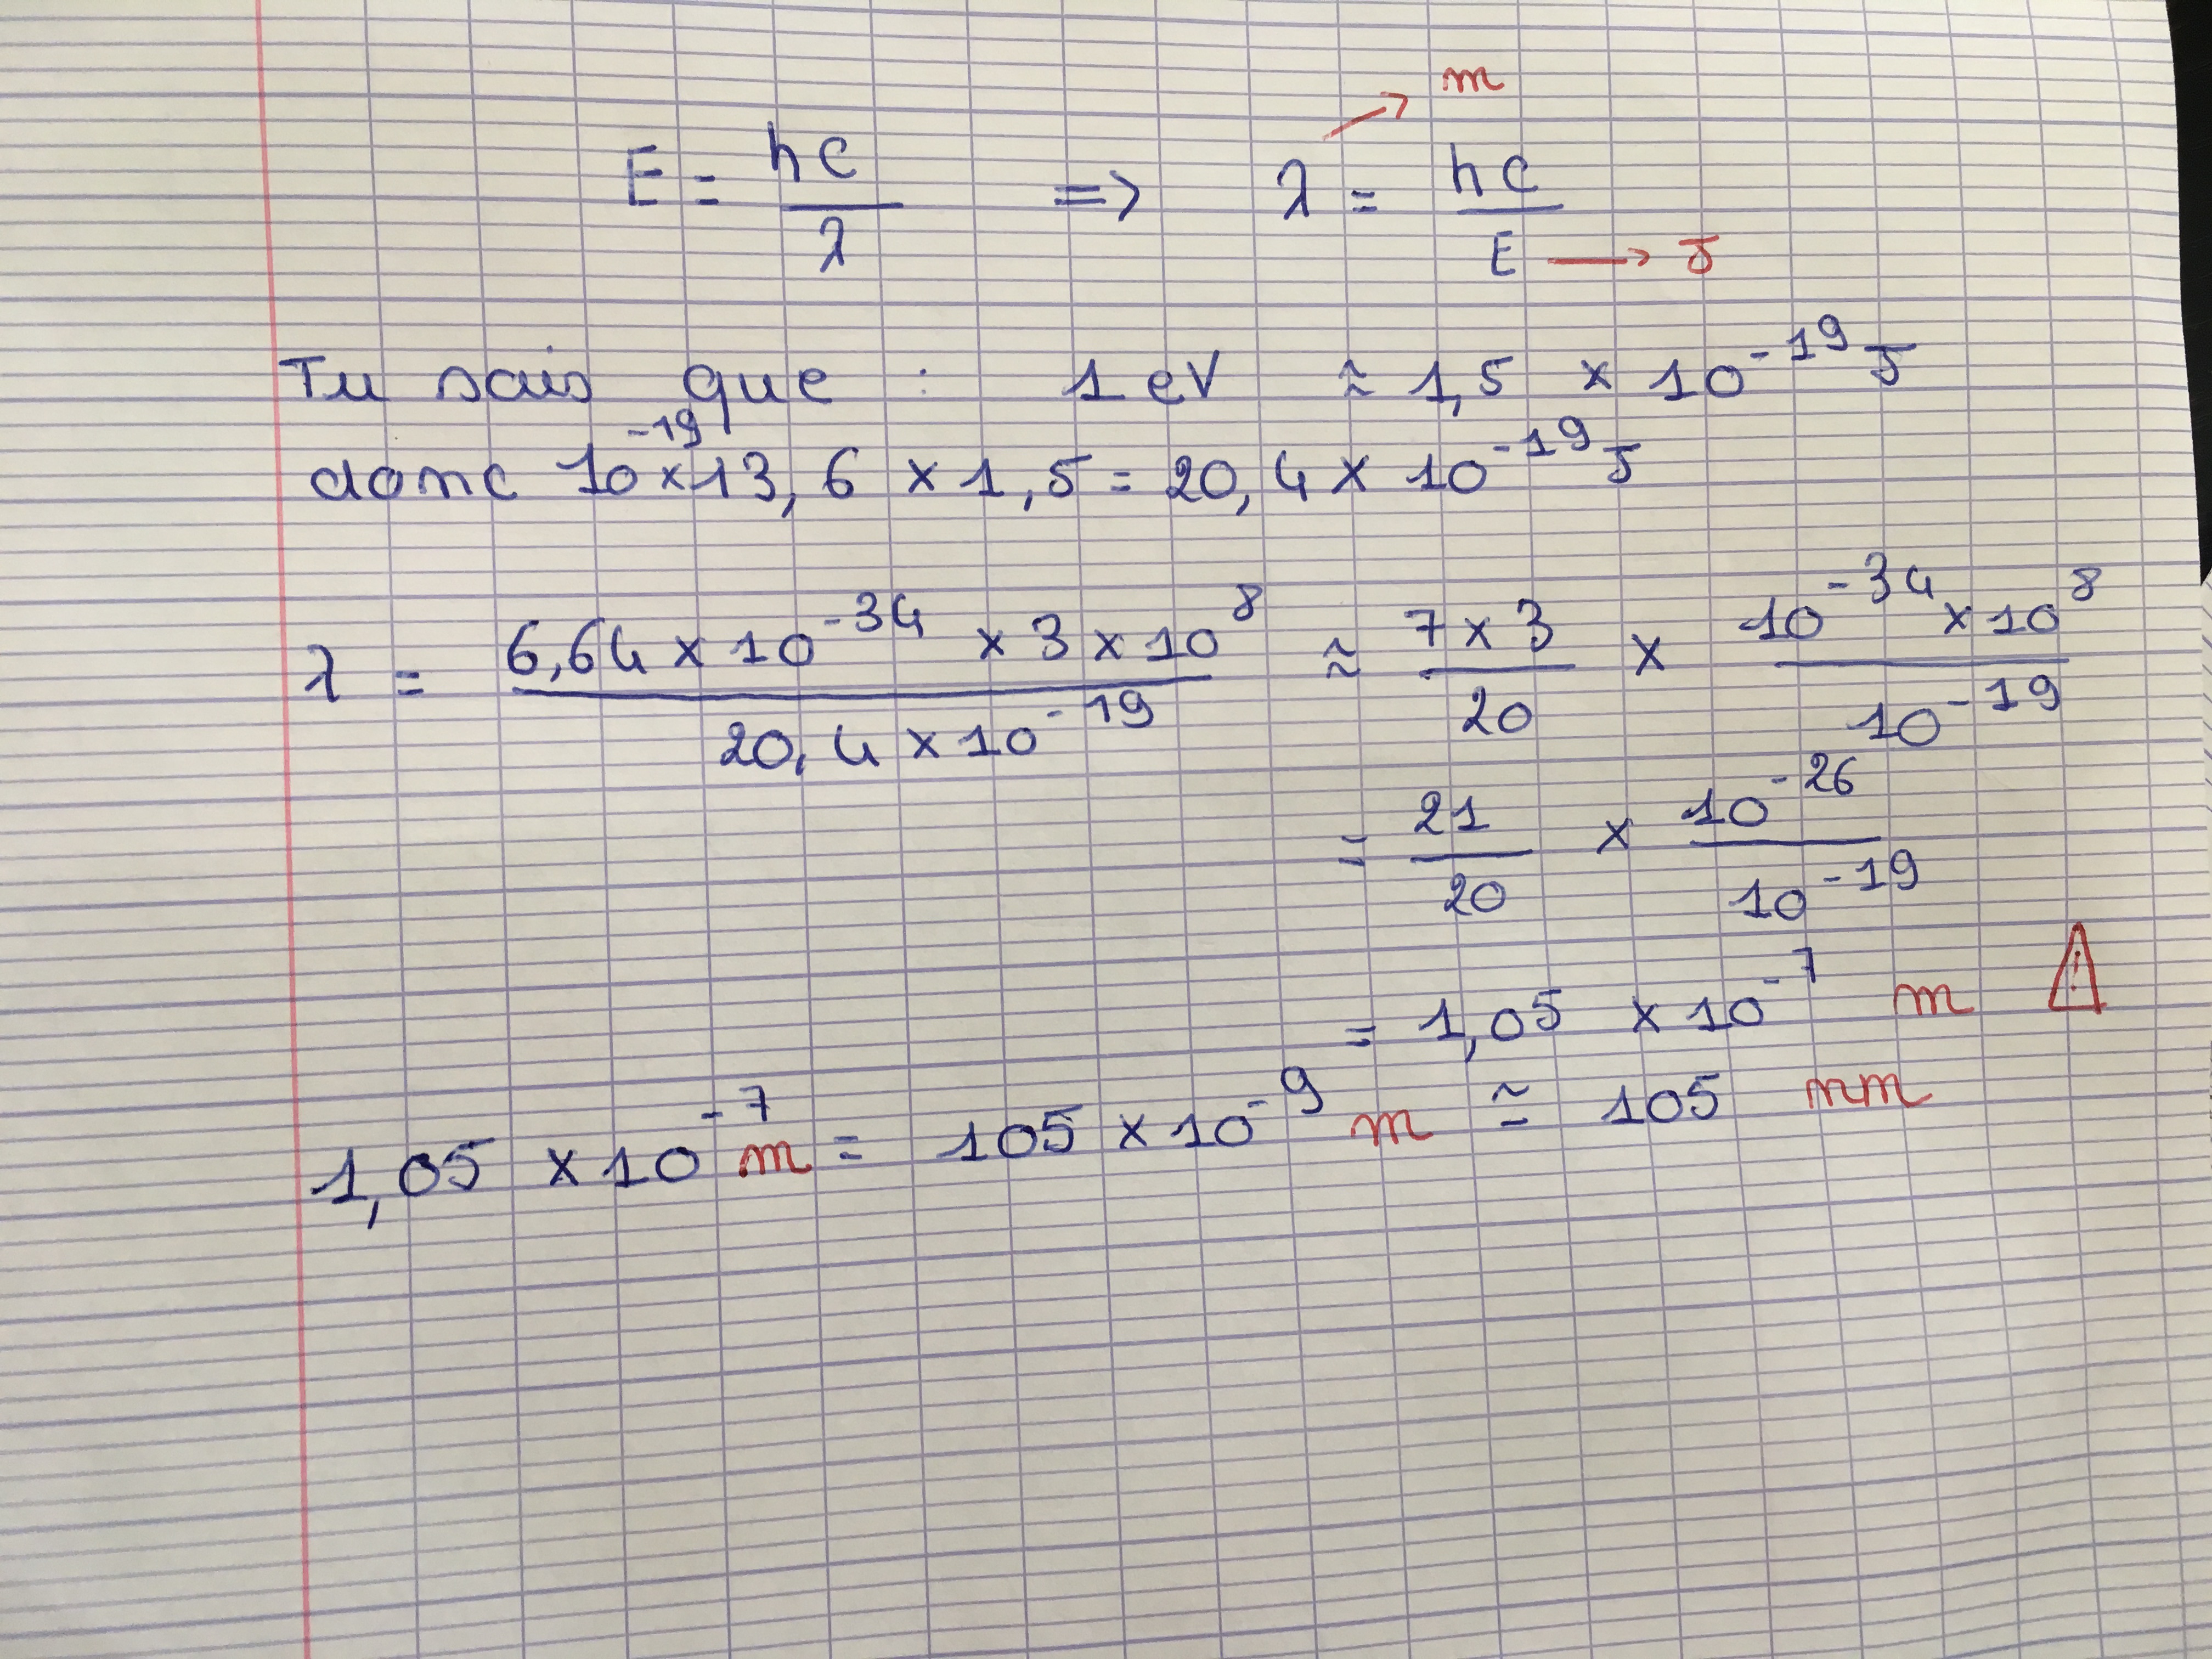 m
E = hc/λ => λ = hc/E → J
Tu sais que : 1 eV ≈ 1,5 × 10⁻¹⁹ J
donc 10⁻¹⁹ × 13,6 × 1,5 = 20,4 × 10⁻¹⁹ J
λ = (6,64 × 10⁻³⁴ × 3 × 10⁸)/(20,4 × 10⁻¹⁹) ≈ (7 × 3)/20 × (10⁻³⁴ × 10⁸)/10⁻¹⁹
= 21/20 × 10⁻²⁶/10⁻¹⁹
= 1,05 × 10⁻⁷ m ⚠
1,05 × 10⁻⁷ m = 105 × 10⁻⁹ m ≃ 105 nm